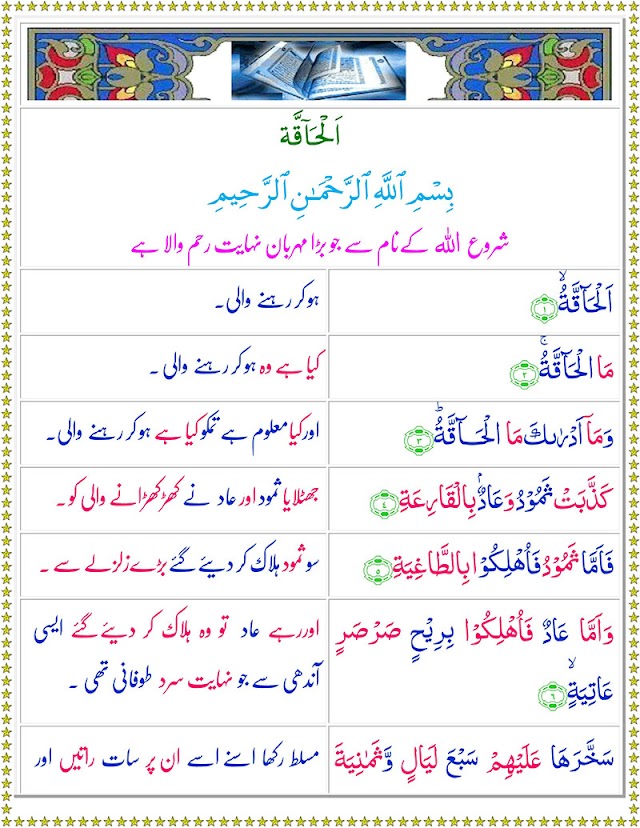 اَلْحَآقَّة
بِسْمِ ٱللَّهِ ٱلرَّحْمَـٰنِ ٱلرَّحِيمِ
شروع اللہ کے نام سے جو بڑا مہربان نہایت رحم والا ہے
اَلْحَآقَّةُۙ ۱
ہوکر رہنے والی۔
مَا الْحَآقَّةُۚ ۲
کیا ہے وہ ہوکر رہنے والی ۔
وَمَاۤ اَدْرٰىكَ مَا الْحَـآقَّةُؕ ۳
اور کیا معلوم ہے تمکو کیا ہے ہوکر رہنے والی۔
كَذَّبَتْ ثَمُوْدُ وَعَادٌۢ بِالْقَارِعَةِ ٤
جھٹلایا ثمود اور عاد نے کھڑکھڑانے والی کو۔
فَاَمَّا ثَمُوْدُ فَاُهْلِكُوْا بِالطَّاغِيَةِ ٥
سو ثمود ہلاک کر دیئے گئے بڑے زلزلے سے ۔
وَاَمَّا عَادٌ فَاُهْلِكُوْا بِرِيْحٍ صَرْصَرٍ
عَاتِيَةٍۙ ٦
اور رہے عاد تو وہ ہلاک کر دیئے گئے ایسی
آندھی سے جو نہایت سرد طوفانی تھی ۔
سَخَّرَهَا عَلَيْهِمْ سَبْعَ لَيَالٍ وَّثَمٰنِيَةَ
مسلط رکھا اسنے اسے ان پر سات راتیں اور